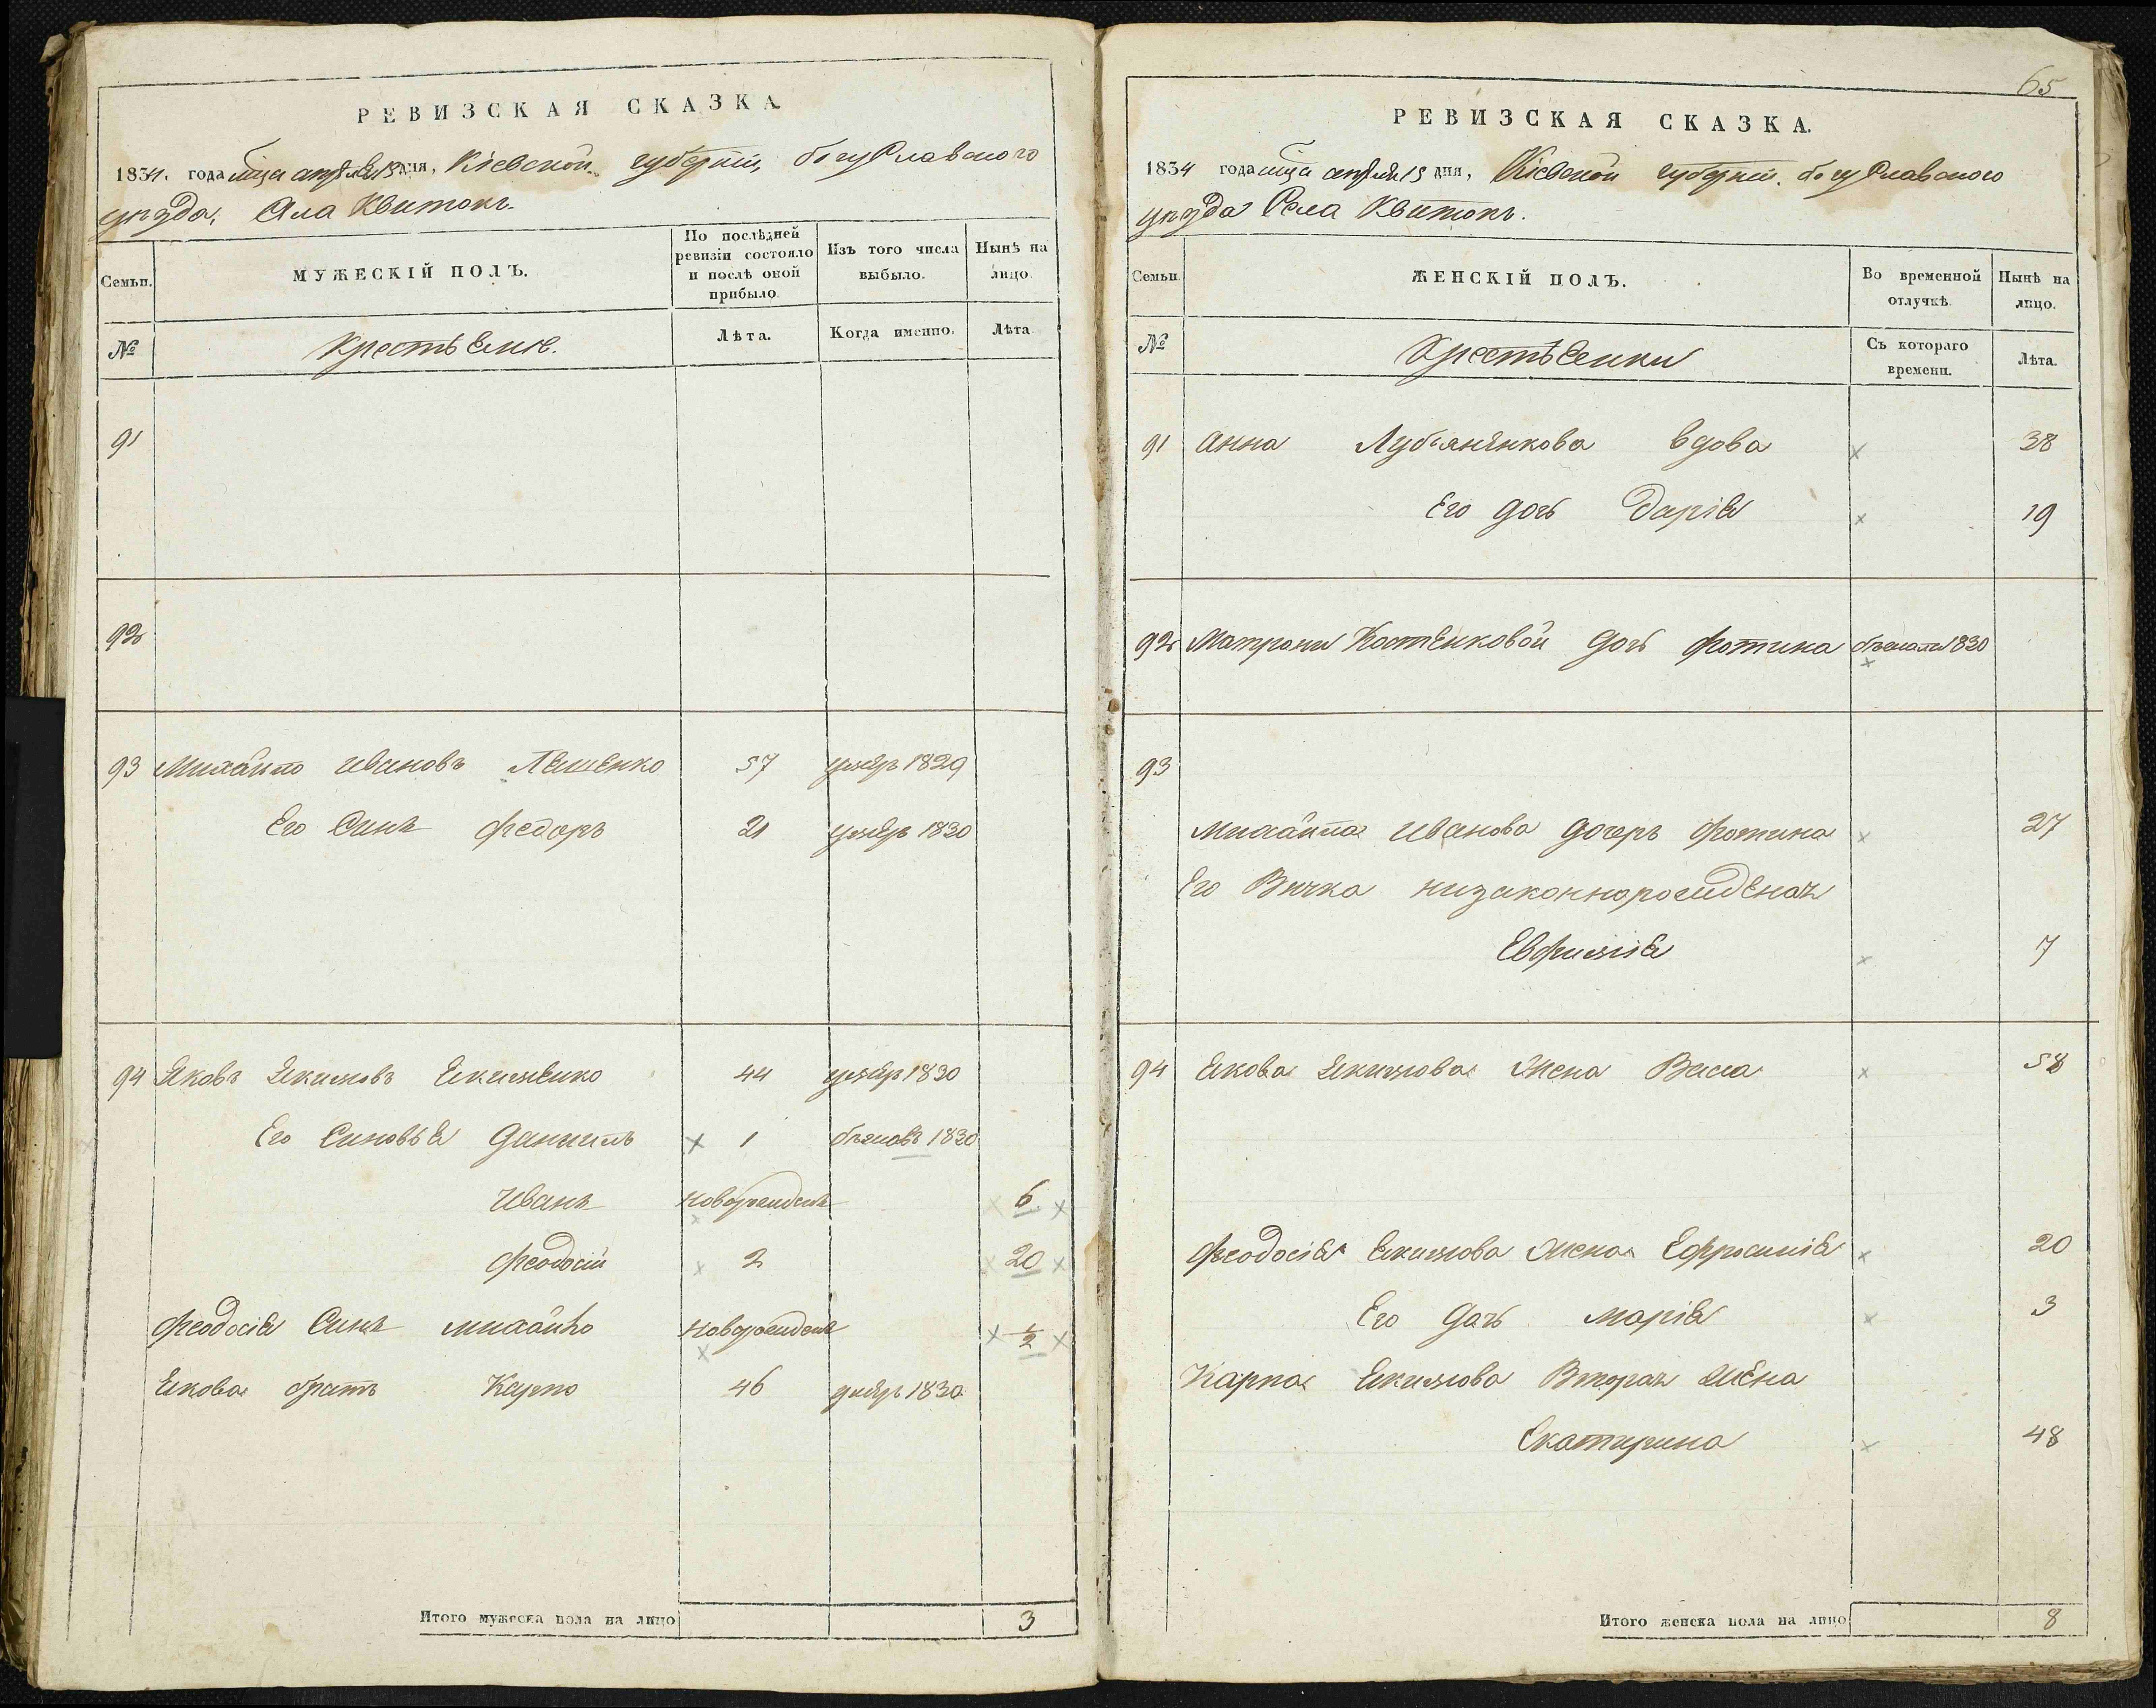 РЕВИЗСКАЯ СКАЗКА.
1834. года мца апреля 15 дня, Кіевской губерніи, богуславского
уезда, Села Квитокъ.
Семьи.
МУЖЕСКІЙ ПОЛЪ.
По послѣдней ревизіи состояло и послѣ оной прибыло.
Изъ того числа выбыло.
Нынѣ на лицо.
№
Крестьяне.
Лѣта.
Когда именно.
Лѣта.
91
92
93 Михайло Ивановъ Лешенко 57 умеръ 1829
Его Синъ Федоръ 21 умеръ 1830
94 Яковъ Якимовъ Якименко 44 умеръ 1830
Его Синовья Даниилъ 1 1830
Иванъ новорожденъ 6
Феодосій 2 20
Феодосія Синъ михайло новорожденъ 1/2
Якова братъ Карпо 46 умеръ 1830
Итого мужеска пола на лицо 3
65
РЕВИЗСКАЯ СКАЗКА.
1834 года мца апреля 15 дня, Кіевской губерніи, богуславского
уезда Села Квитокъ.
Семьи.
ЖЕНСКІЙ ПОЛЪ.
Во временной отлучкѣ.
Нынѣ на лицо.
№
Крестьянки
Съ котораго времени.
Лѣта.
91 Анна вдова 38
Его дочь Дарія 19
92 Матрони Костенковой дочь Фотина 1830
93
Михайла Иванова дочерь Фотина 27
Его Внучка низаконнорожденая
Евфимія 7
94 Якова Якимова Жена Васса 58
Феодосія Якимова Жена Ефросинія 20
Его дочь Марія 3
Карпа Якимова Вторая Жена
Екатирина 48
Итого женска пола на лицо 8